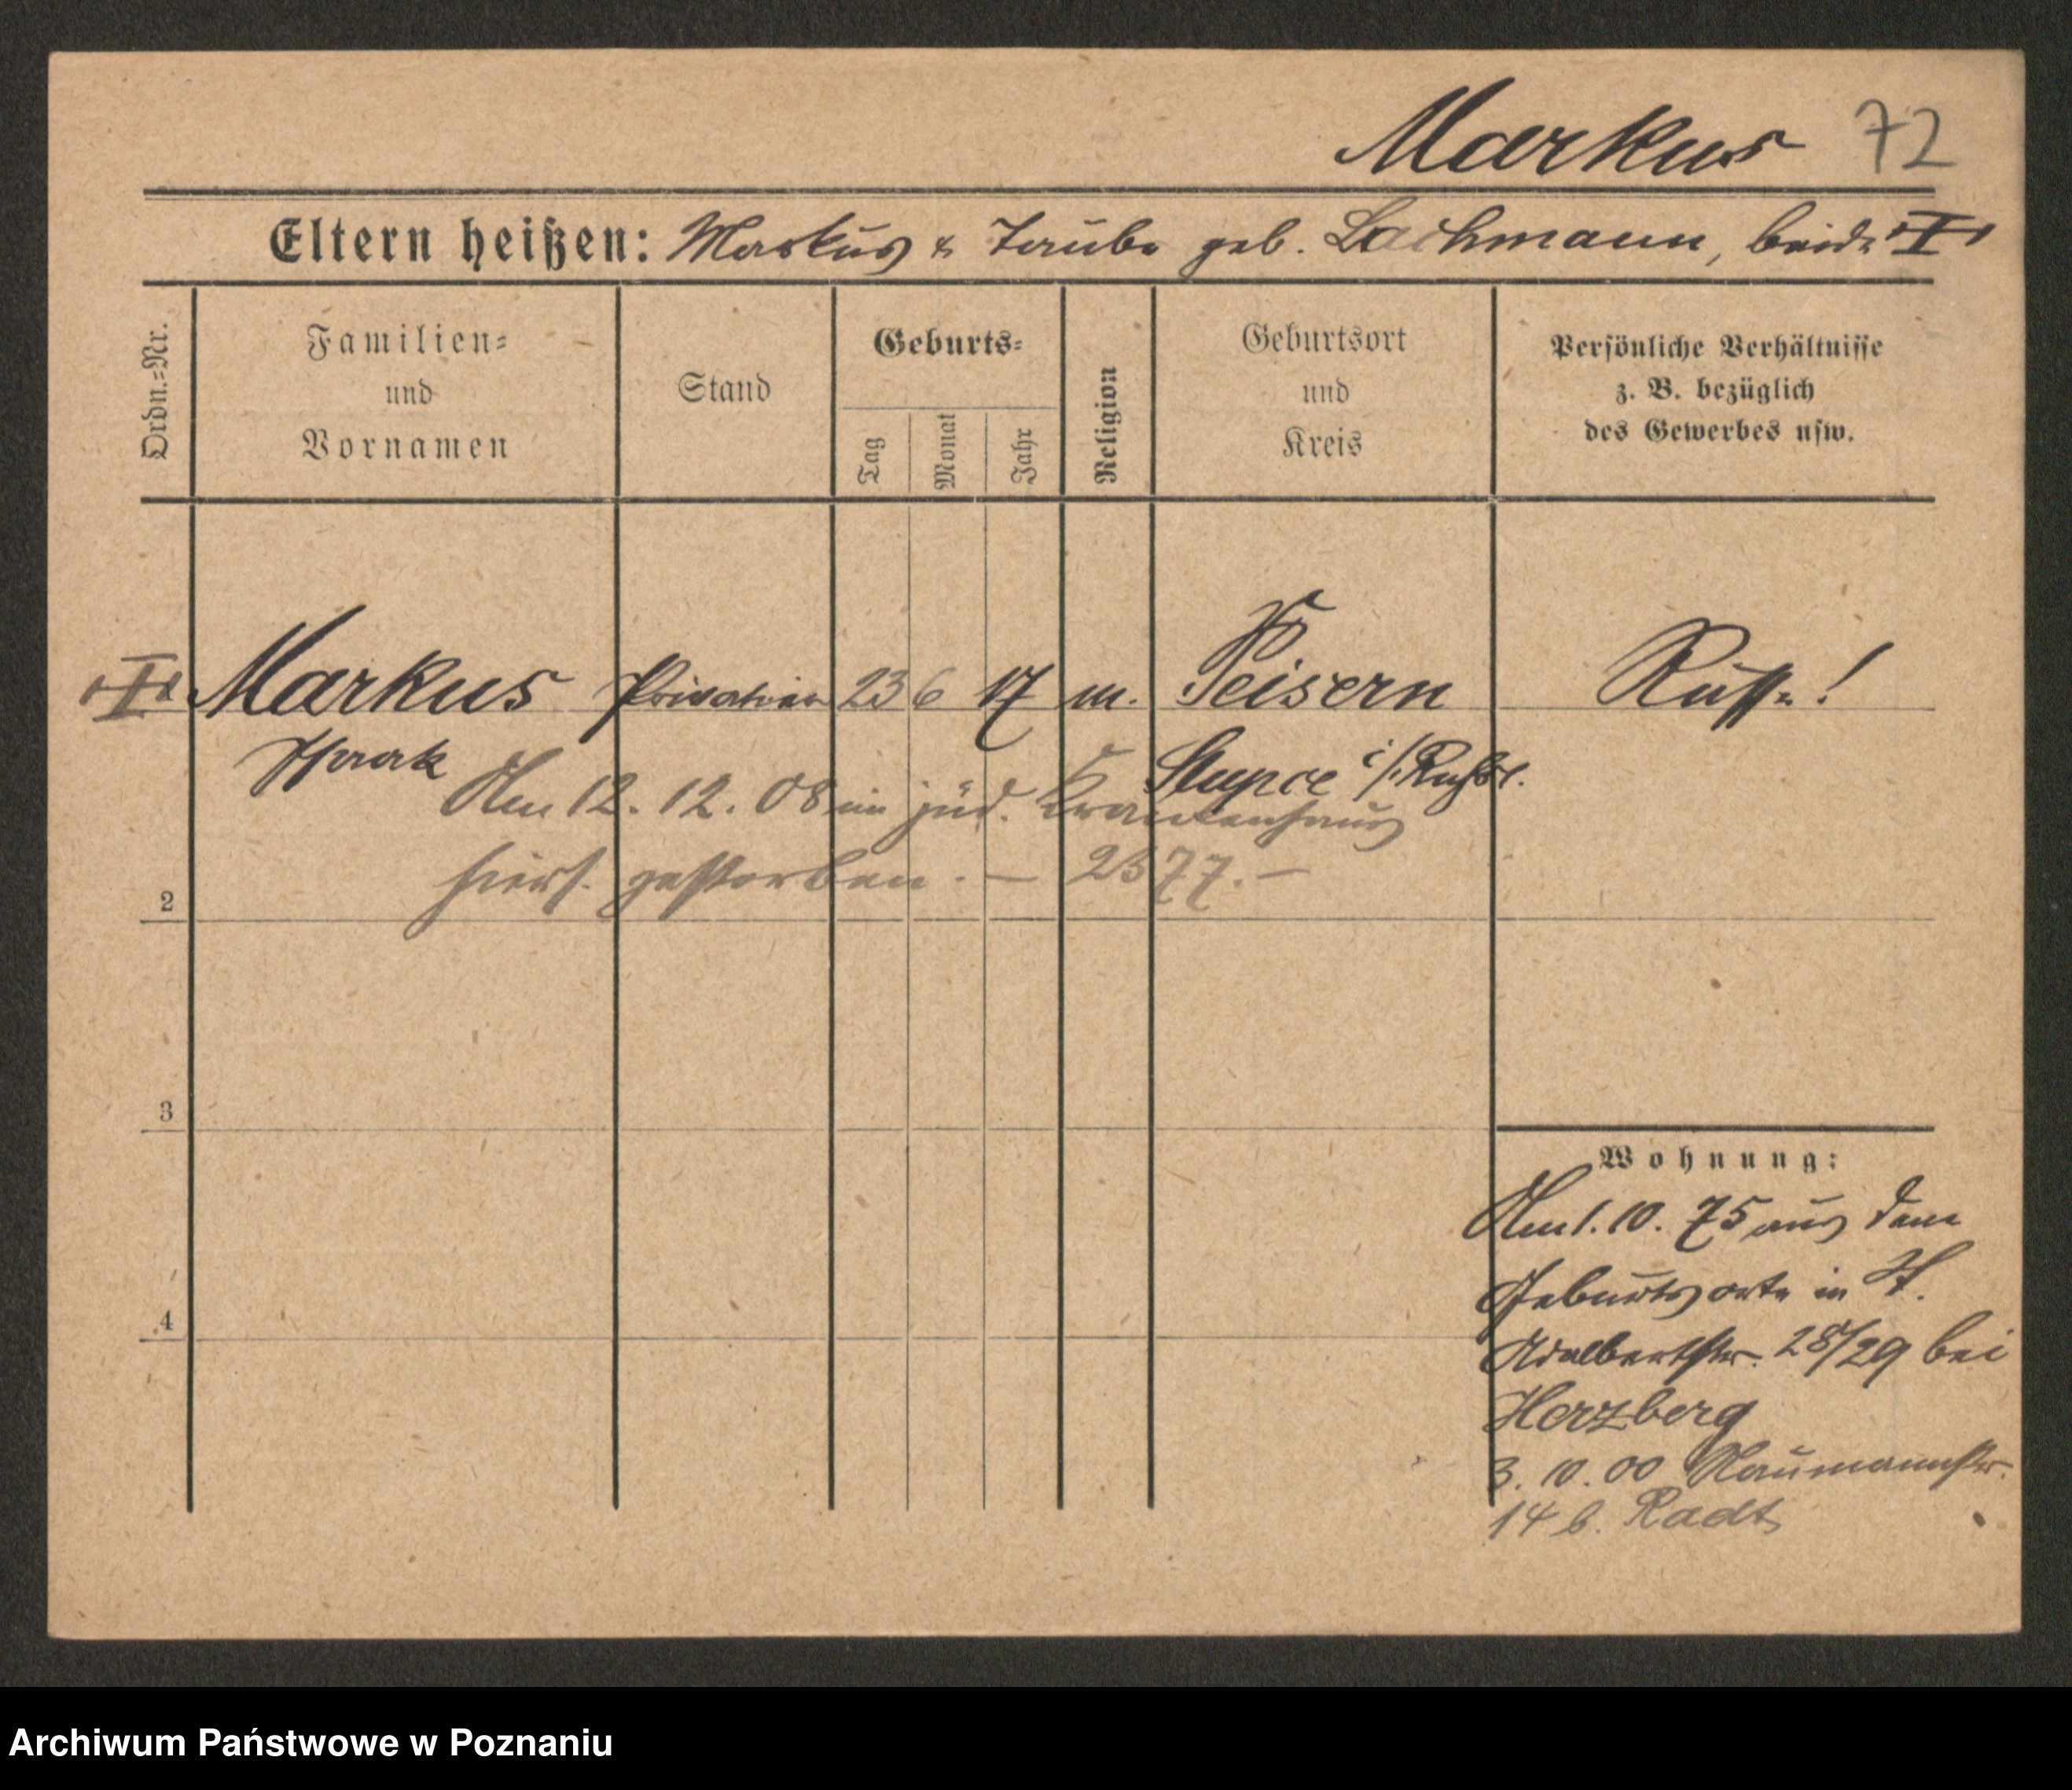 Markus 72
Eltern heißen: Markus & Taube geb. Lachmann, beide
Ordn.-Nr.
Familien-
und
Vornamen
Stand
Geburts-
Tag
Monat
Jahr
Religion
Geburtsort
und
Kreis
Persönliche Verhältnisse
z. B. bezüglich
des Gewerbes usw.
Markus Privatier 23 6 17 m. Peisern Russe!
Slupce i/Rußl.
Am 12. 12. 08 im jüd. Krankenhaus
hiers. gestorben. — 2577. —
2
3
4
Wohnung:
Am 1. 10. 75 aus dem
Geburtsorte in St.
Adalbertstr. 28/29 bei
Herzberg
3. 10. 00 Naumannstr.
14 b. Radt
Archiwum Państwowe w Poznaniu